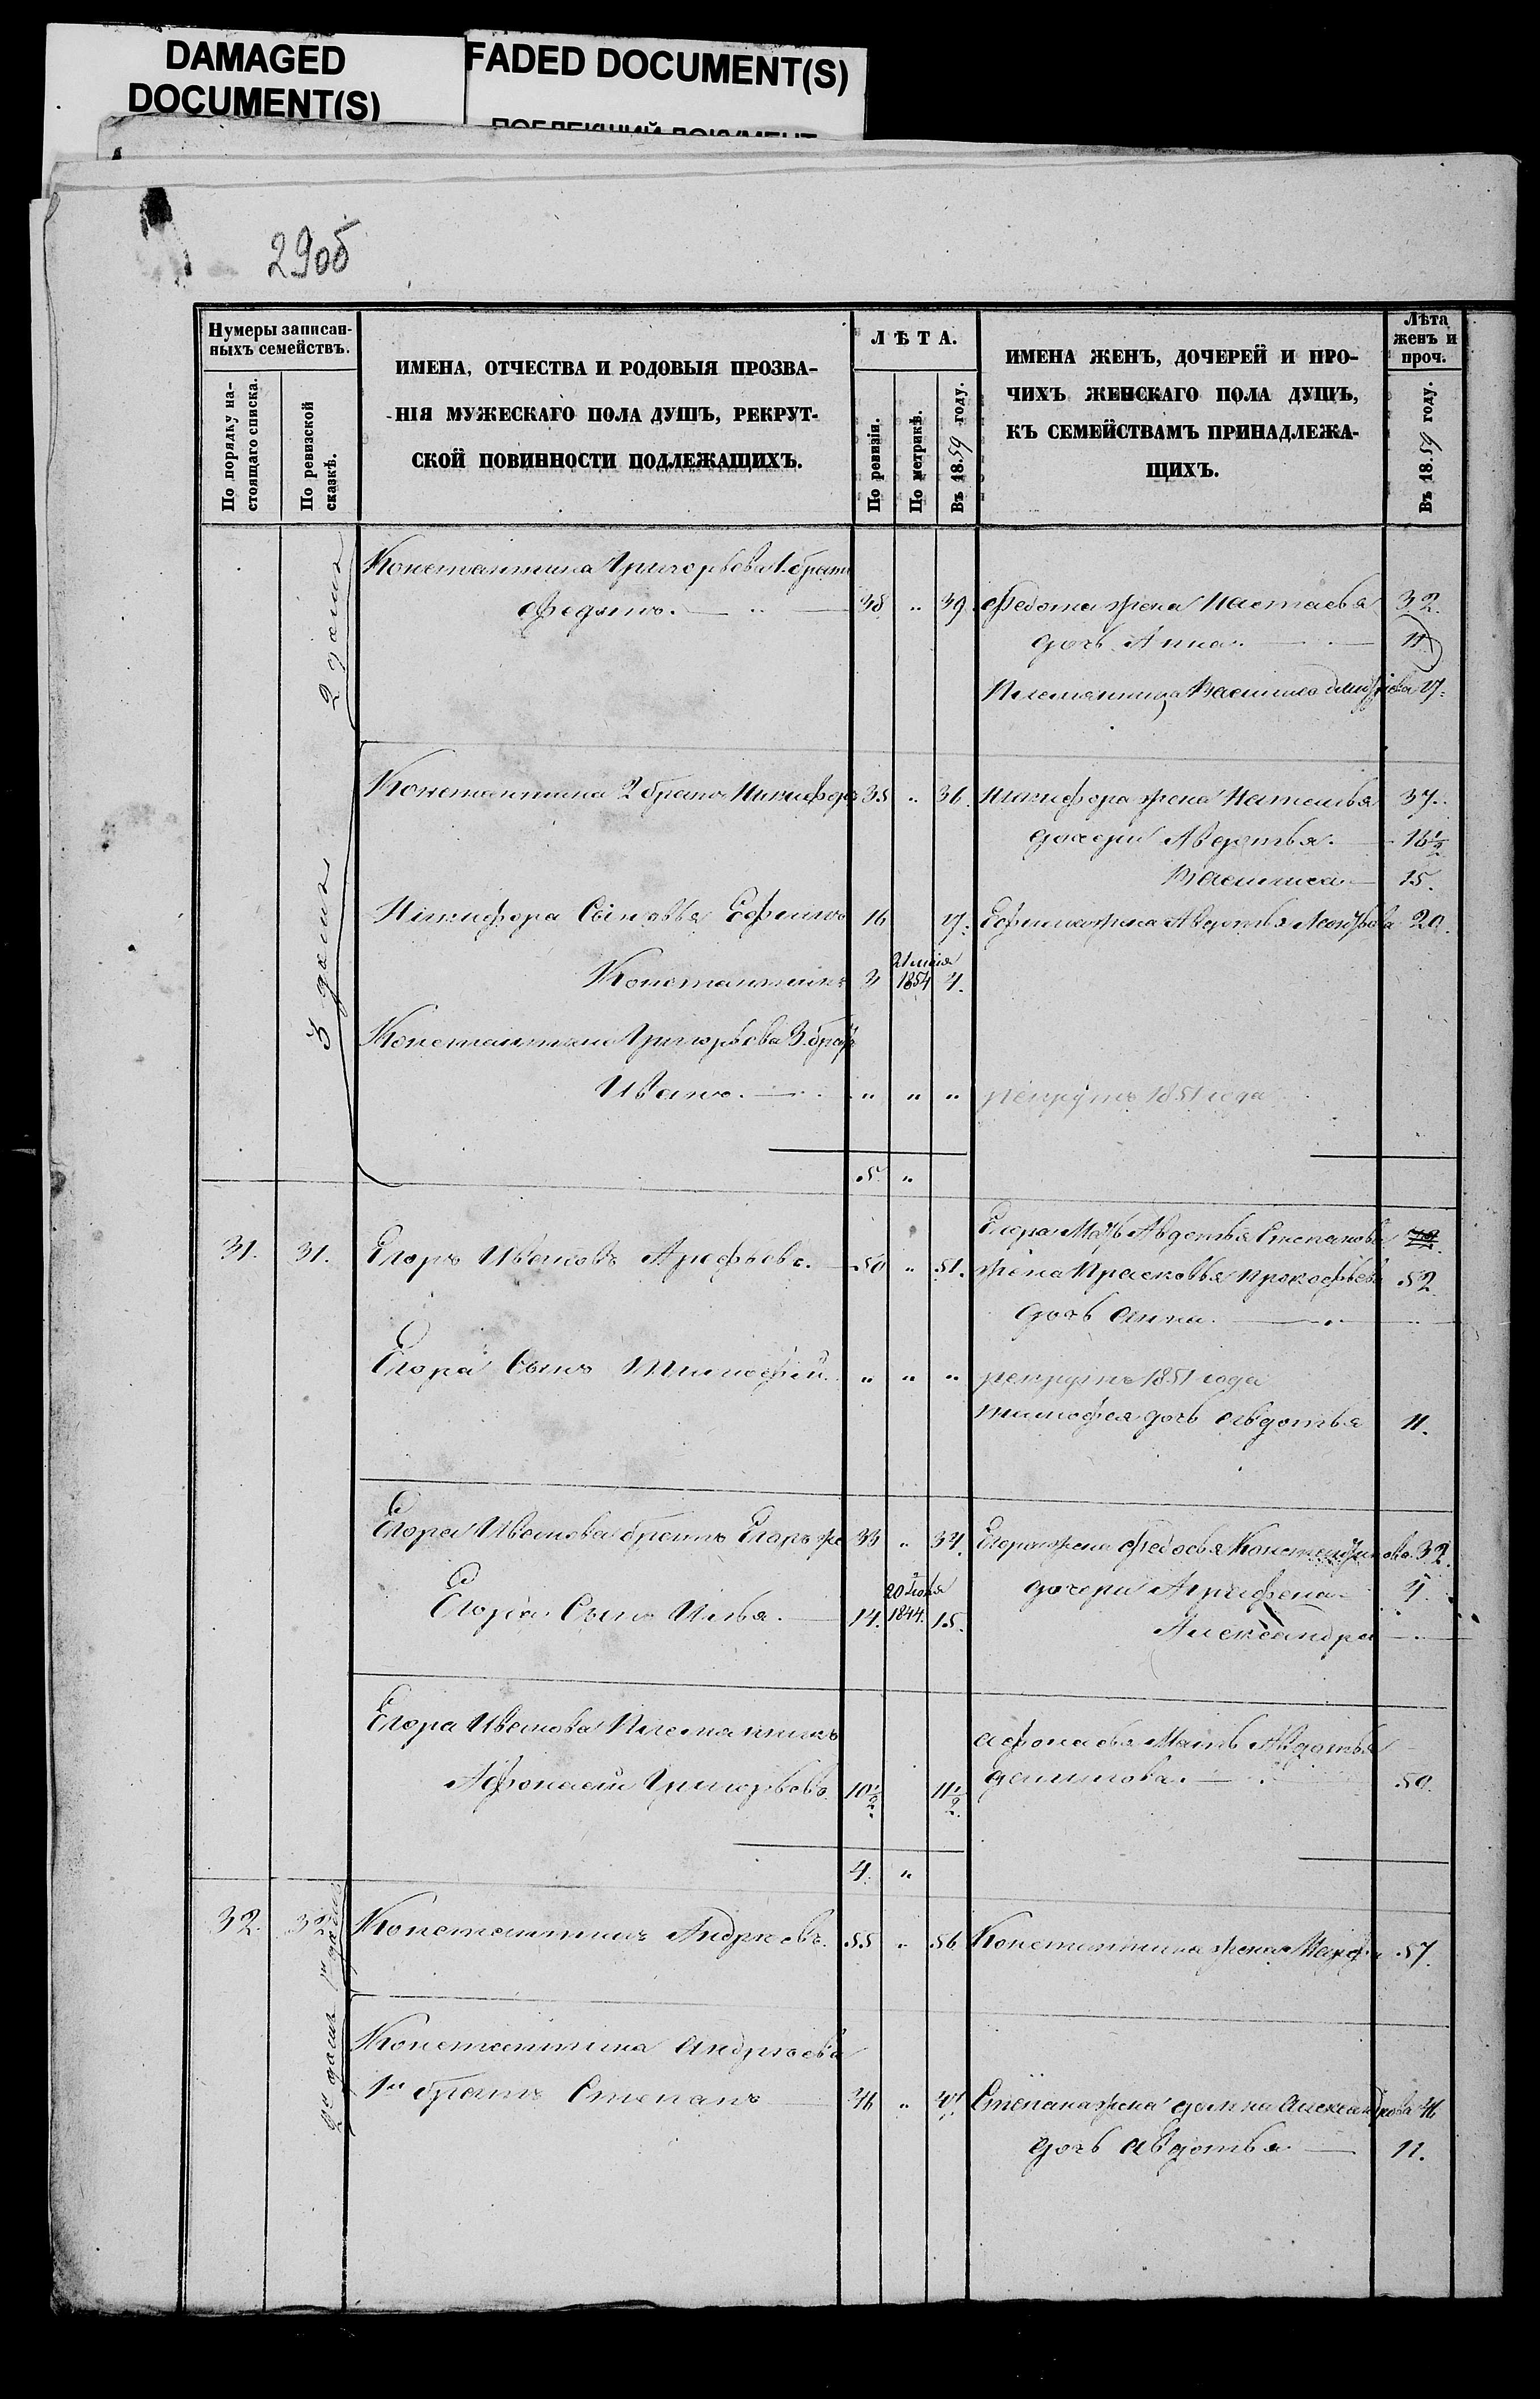 DAMAGED
DOCUMENT(S)
FADED DOCUMENT(S)
29об
Нумеры записан-
ныхъ семействъ.
По порядку на-
стоящаго списка.
По ревизской
сказкѣ.
ИМЕНА, ОТЧЕСТВА И РОДОВЫЯ ПРОЗВА-
НІЯ МУЖЕСКАГО ПОЛА ДУШЪ, РЕКРУТ-
СКОЙ ПОВИННОСТИ ПОДЛЕЖАЩИХЪ.
ЛѢТА.
По ревизіи.
По метрикѣ.
Въ 1859 году.
ИМЕНА ЖЕНЪ, ДОЧЕРЕЙ И ПРО-
ЧИХЪ ЖЕНСКАГО ПОЛА ДУШЪ,
КЪ СЕМЕЙСТВАМЪ ПРИНАДЛЕЖА-
ЩИХЪ.
Лѣта
женъ и
проч.
Въ 1859 году.
Константина Григорьева 1. братъ
Федотъ. 38 " 39. Федота жена Настасья 32.
дочь Анна. 11
Племянница Василиса 17.
Константина 2 братъ Никифоръ 35 " 36. Никифора жена Наталья 37.
дочери Авдотья. 16 1/2
Василиса 15.
Никифора Сыновья Ефимъ 16 17. Ефима жена Авдотья 20.
Константинъ 3 21 мая 1854 4.
Константина Григорьева 3. братъ
Иванъ. " " " рекрутъ 1851 года
5. "
31. 31. Егоръ Ивановъ Арефьевъ. 50 " 51.
Егора Мать Авдотья Степанова
жена Прасковья Прокофьева 52
дочь Анна.
Егора Сынъ Тимофей. " " " рекрутъ 1851 года
Тимофея дочь Авдотья 11.
Егора Иванова братъ Егоръ же 33 " 34. Егора жена Федосья Константинова 32.
Егора Сынъ Илья. 14. 20 1844. 15. дочери Аграфена
Александра
Егора Иванова Племянникъ
Афонасей Григорьевъ. 10 1/2 11 1/2.
Афонасья Мать Авдотья
50.
4. "
32. 32. Константинъ Андреевъ. 55 " 56 Константина жена Марфа 57.
Константина Андреева
1й братъ Степанъ 46 " 47 Степана жена Александрова 46
дочь Авдотья 11.